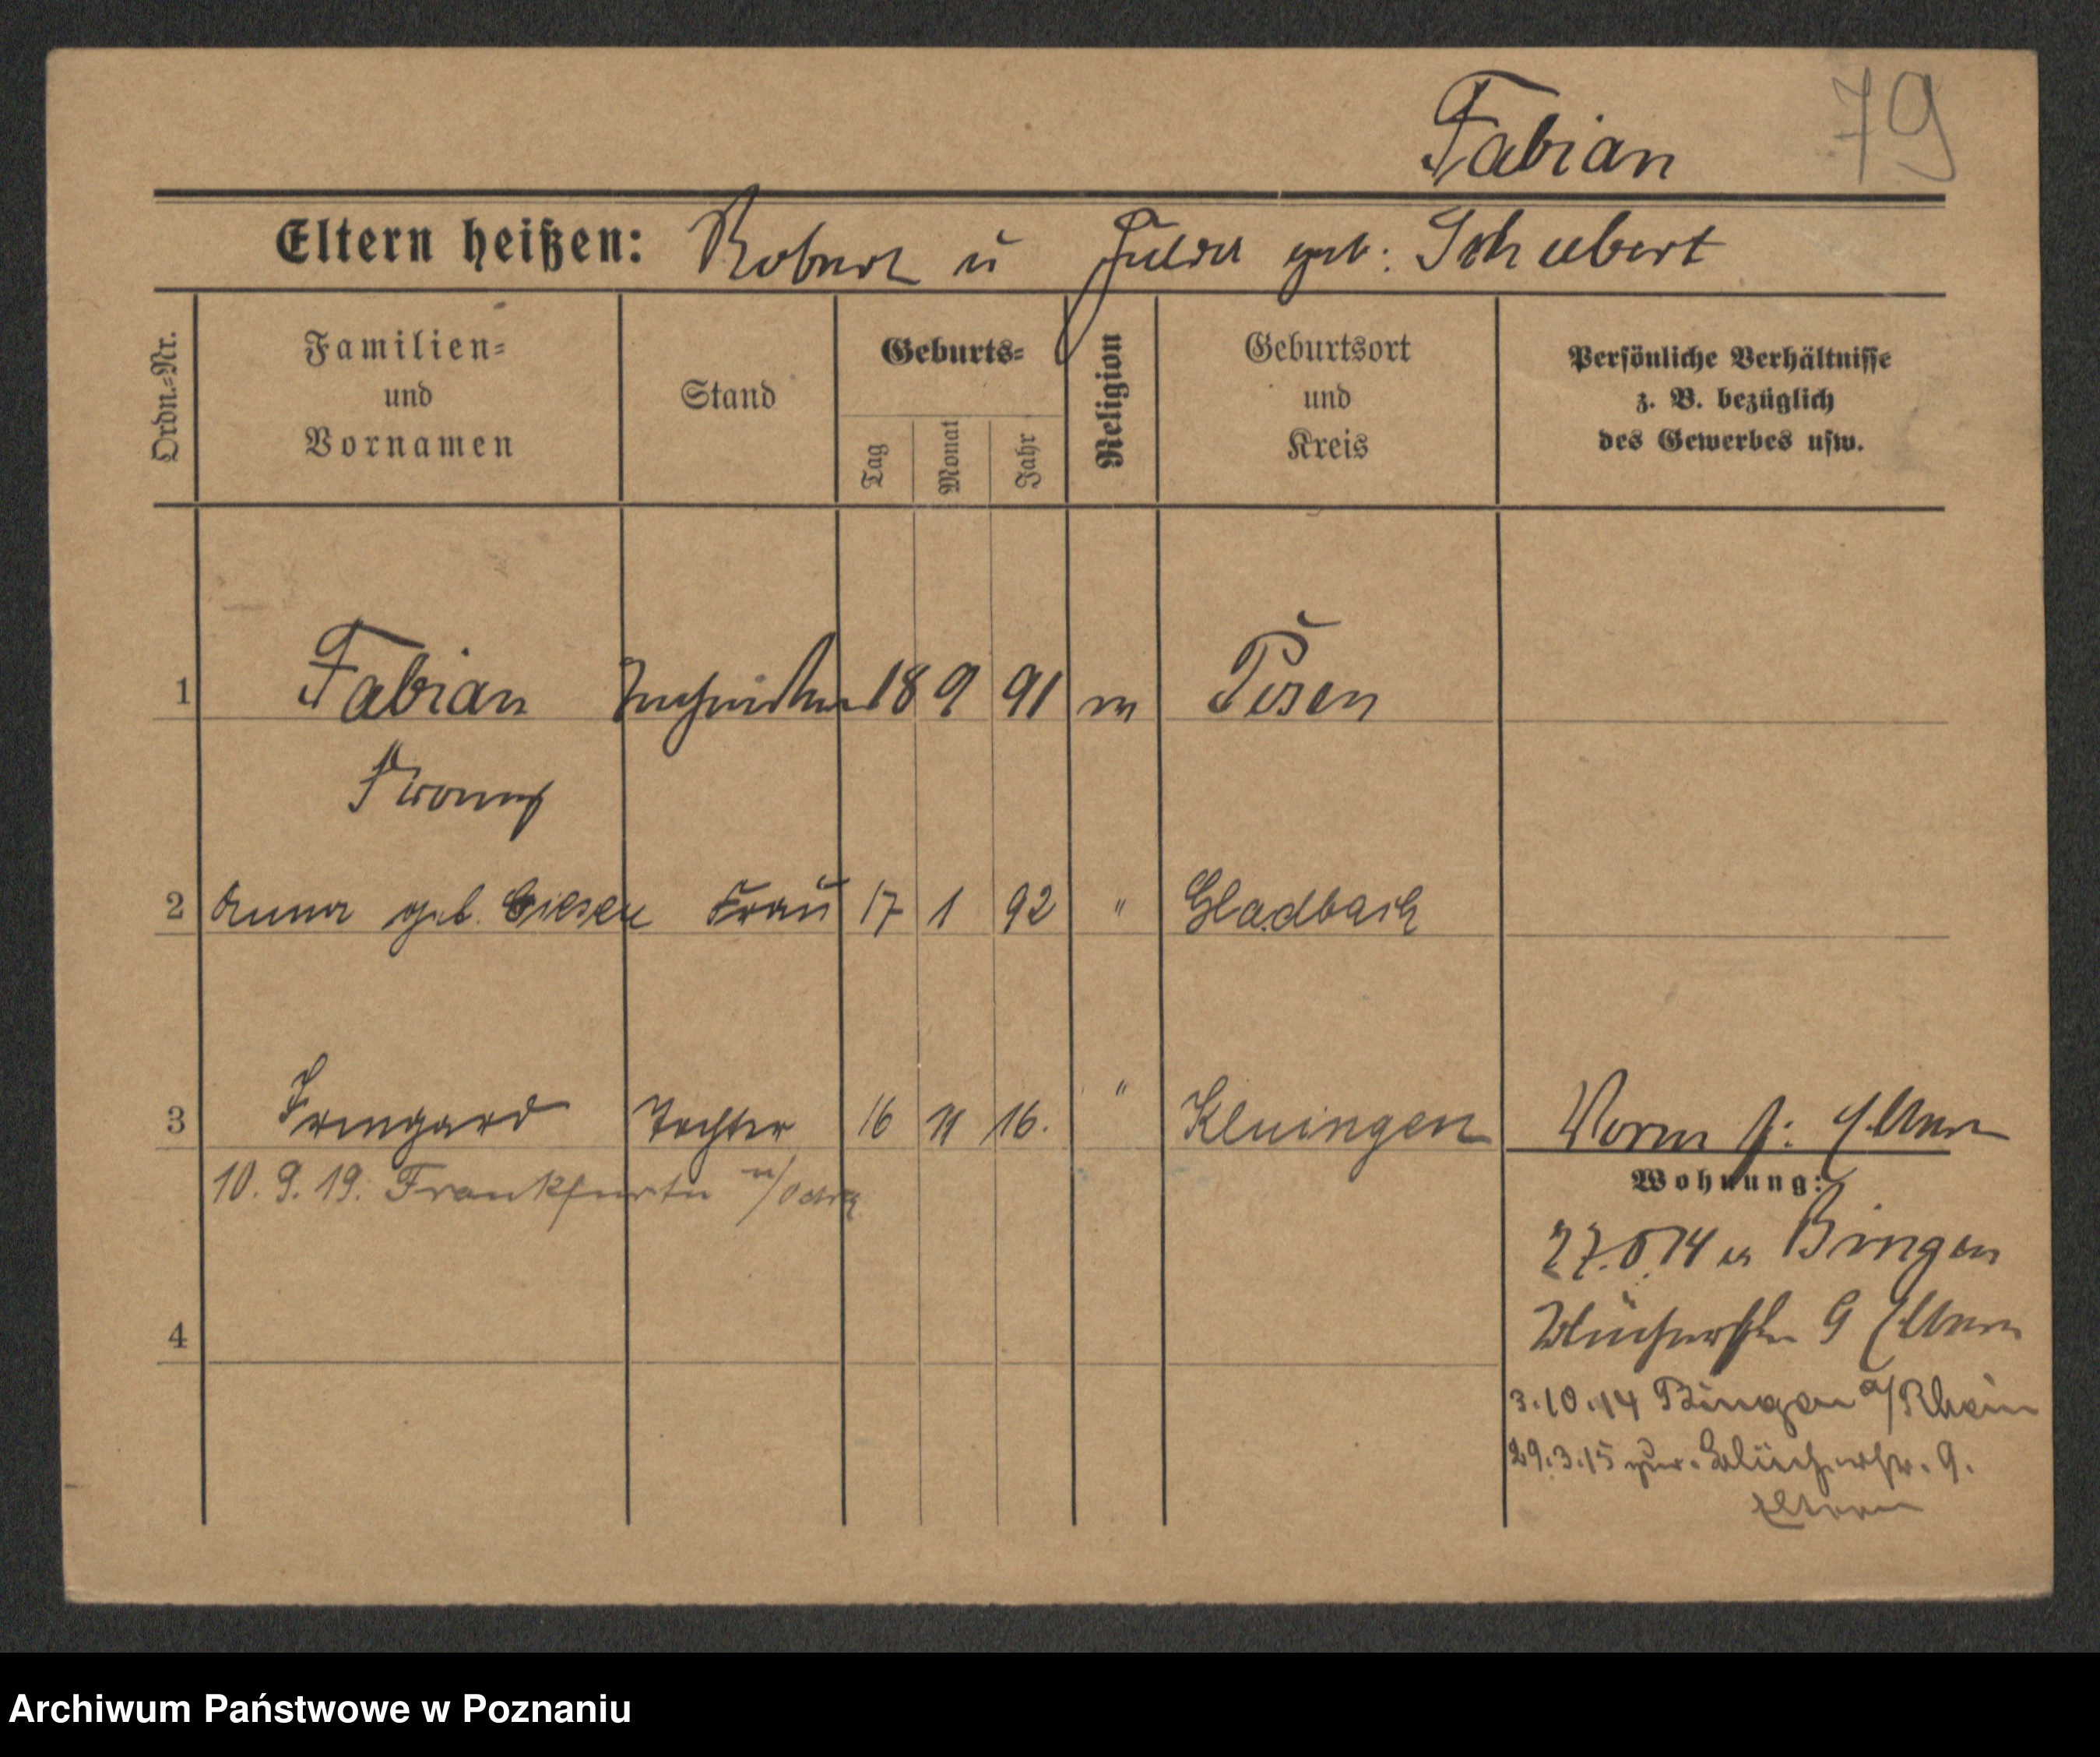 79
Fabian
Eltern heißen: Robert u Hulda geb: Schubert
Ordn.-Nr.
Familien-
und
Vornamen
Stand
Geburts-
Tag
Monat
Jahr
Religion
Geburtsort
und
Kreis
Persönliche Verhältnisse
z. B. bezüglich
des Gewerbes usw.
1 Fabian 18 9 91 Posen
2 Anna geb. Giesen Frau 17 1 92 " Gladbach
3 Irmgard Tochter 16 11 16. " Eltern
10. 9. 19. Frankfurt a/Oder
Wohnung:
Bingen
4 9 Eltern
3.10.14 Bingen a/Rhein
29.3.15 zur. Blücherstr. 9.
Eltern
Archiwum Państwowe w Poznaniu